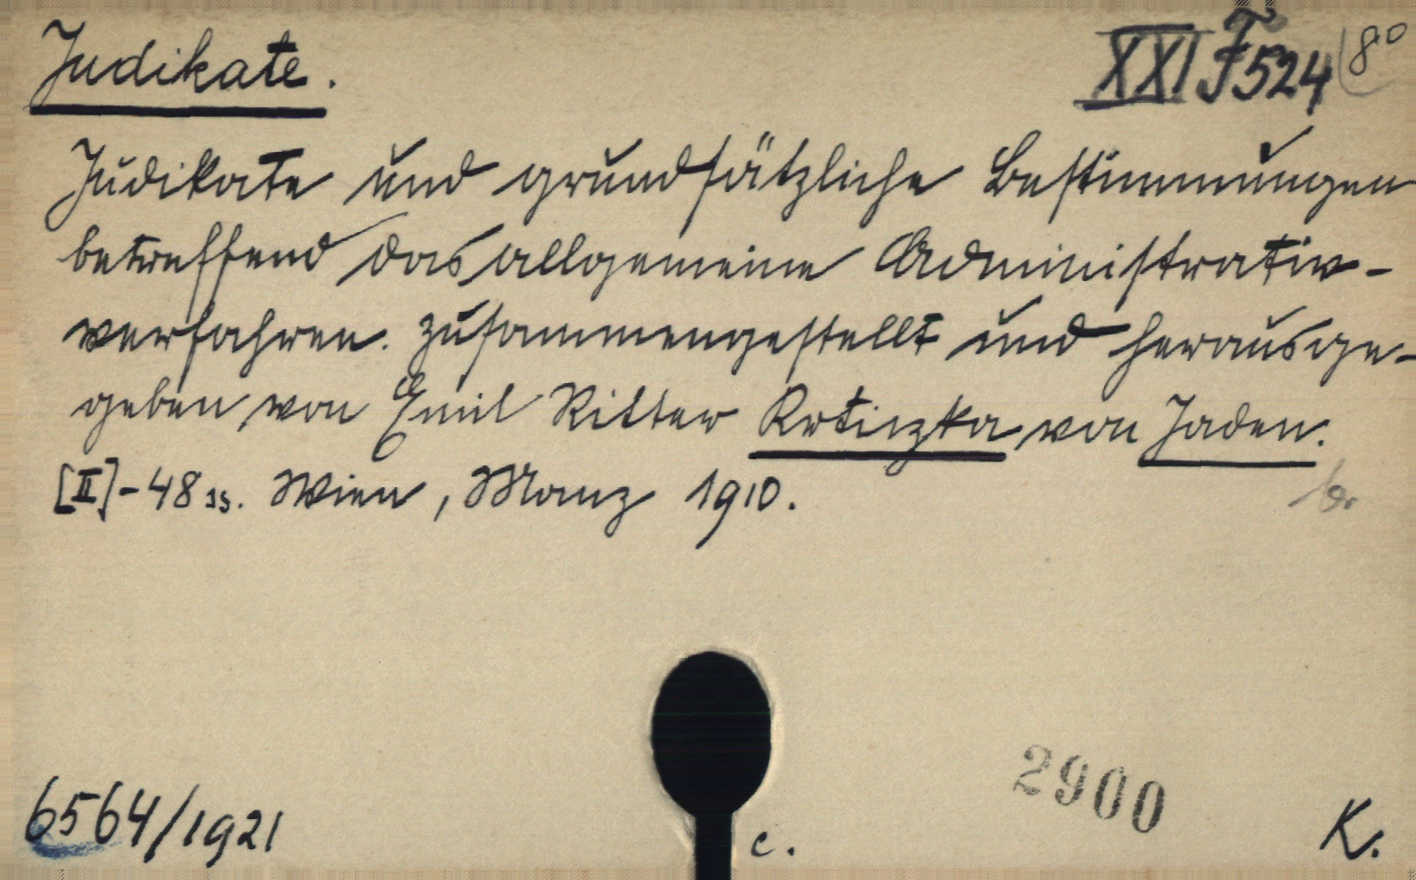 Judikate.
XXI F 524 8°
Judikate und grundsätzliche Bestimmungen
betreffend das allgemeine Administrativ-
verfahren. Zusammengestellt und herausge-
geben von Emil Ritter Krticzka von Jaden.
[II]-48 ss. Wien, Manz 1910.
2900
6564/1921
c.
K.